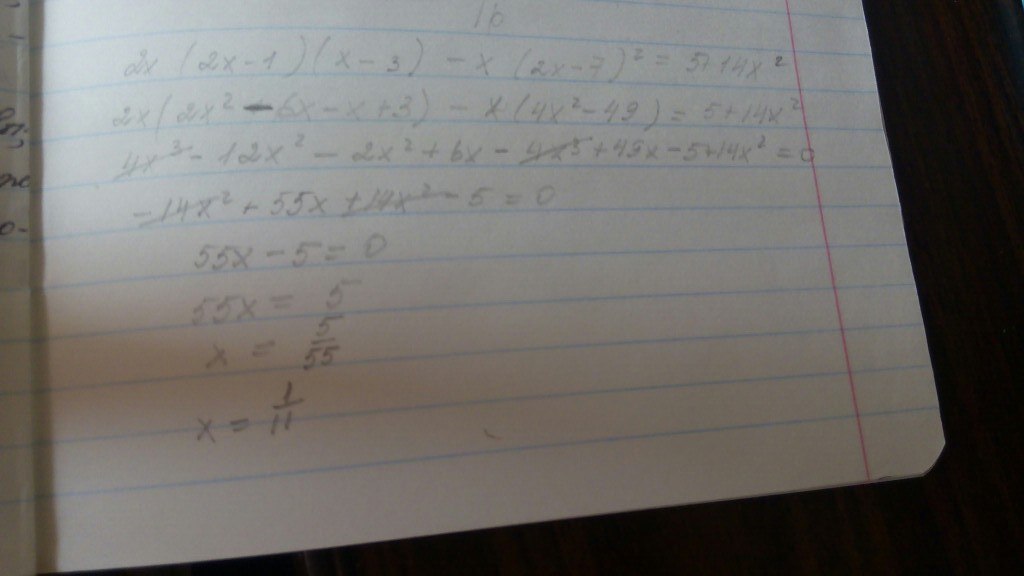 16
2x (2x-1)(x-3) - x (2x-7)² = 5+14x²
2x(2x² - 6x-x+3) - x(4x²-49) = 5+14x²
4x³ - 12x² - 2x² + 6x - 4x³ + 49x - 5+14x² = 0
-14x² + 55x + 14x² - 5 = 0
55x - 5 = 0
55x = 5
x = 5/55
x = 1/11